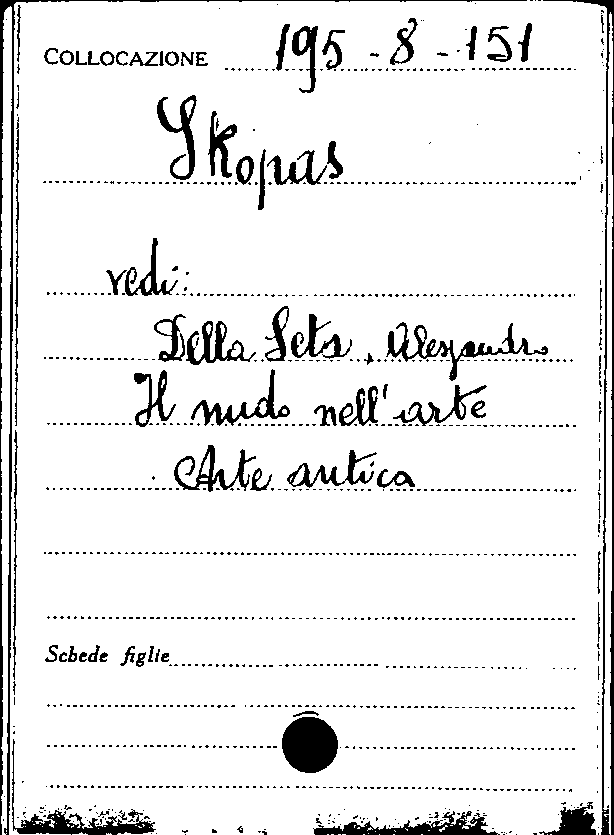 COLLOCAZIONE 195-8-151
Skopas
vedi:
Della Seta, Alessandro
Il nudo nell'arte
Arte antica
Schede figlie